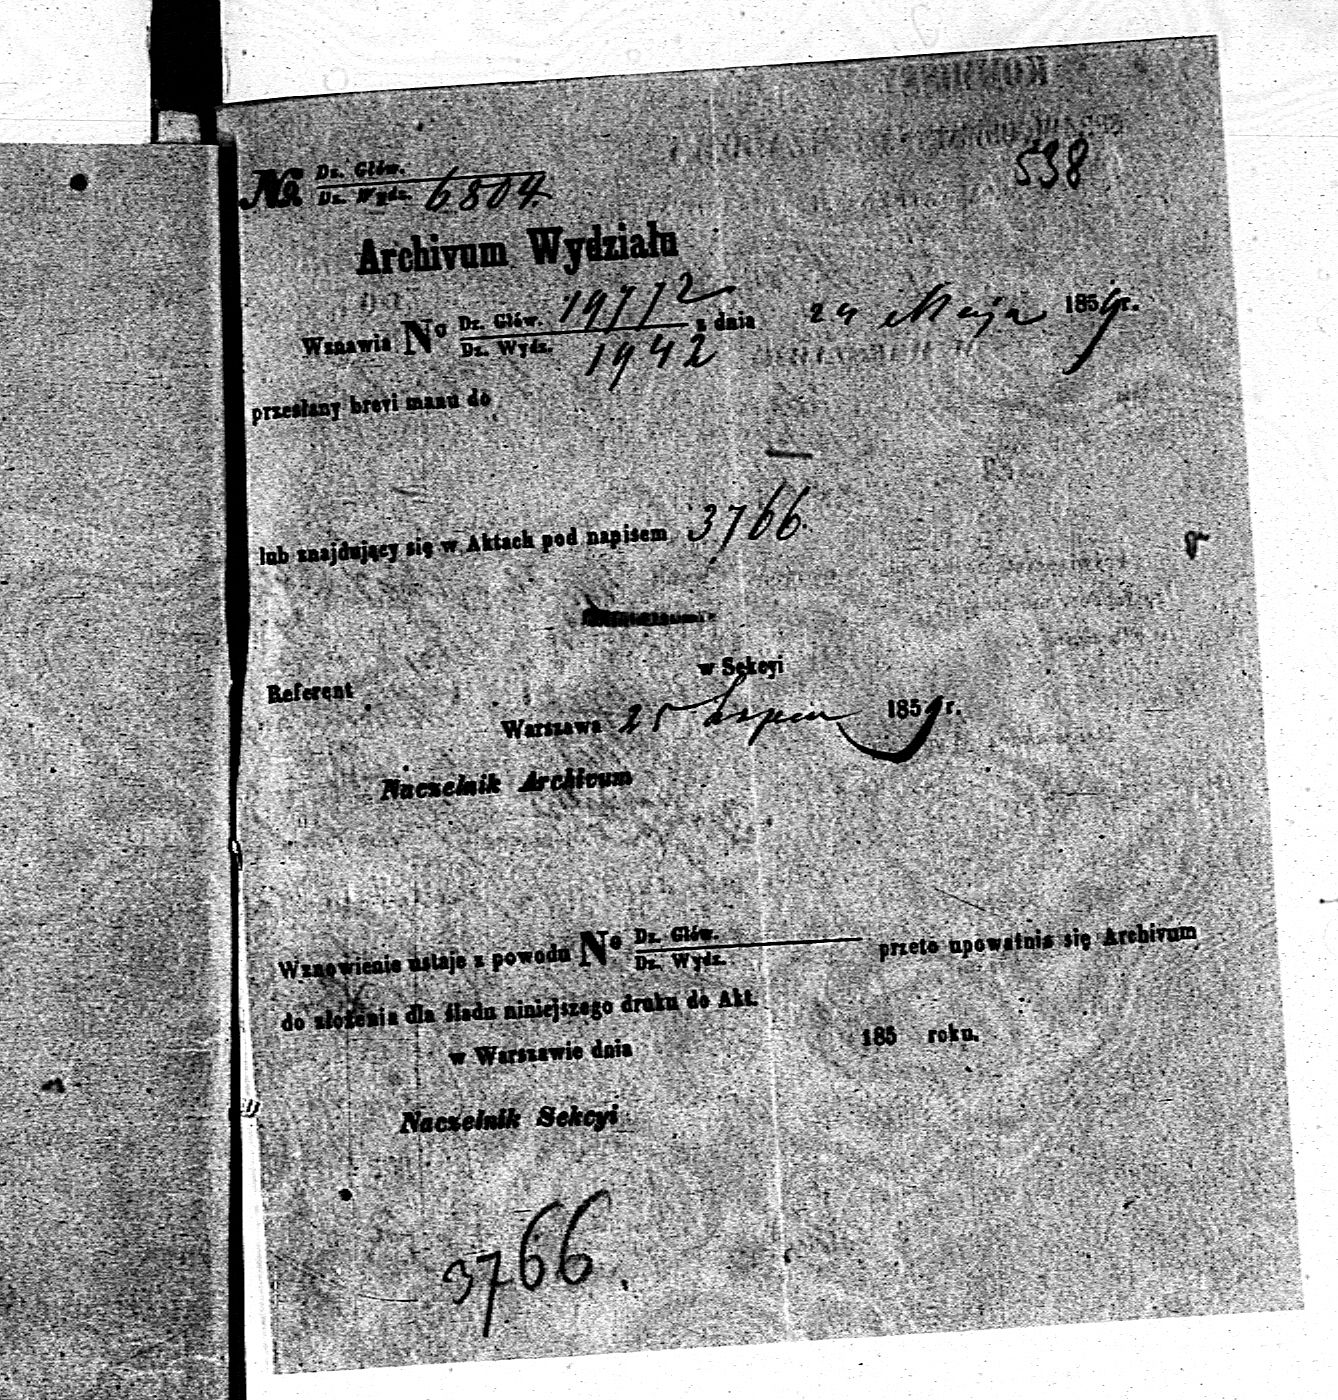 538
No. Dz. Główn.
Dz. Wydz. 6804
Archivum Wydziału
Wznawia No Dz. Głów. 19772 z dnia 24 Maja 1859 r.
Dz. Wydz. 1942
przesłany brevi manu do
lub znajdujący się w Aktach pod napisem 3766.
w Sekcyi
Referent
Warszawa 25 Lipca 1859 r.
Naczelnik Archivum
Wznowienie ustaje z powodu No Dz. Głów. przeto upoważnia się Archivum
Dz. Wydz.
do złożenia dla śladu niniejszego druku do Akt.
w Warszawie dnia 185 roku.
Naczelnik Sekcyi
3766.